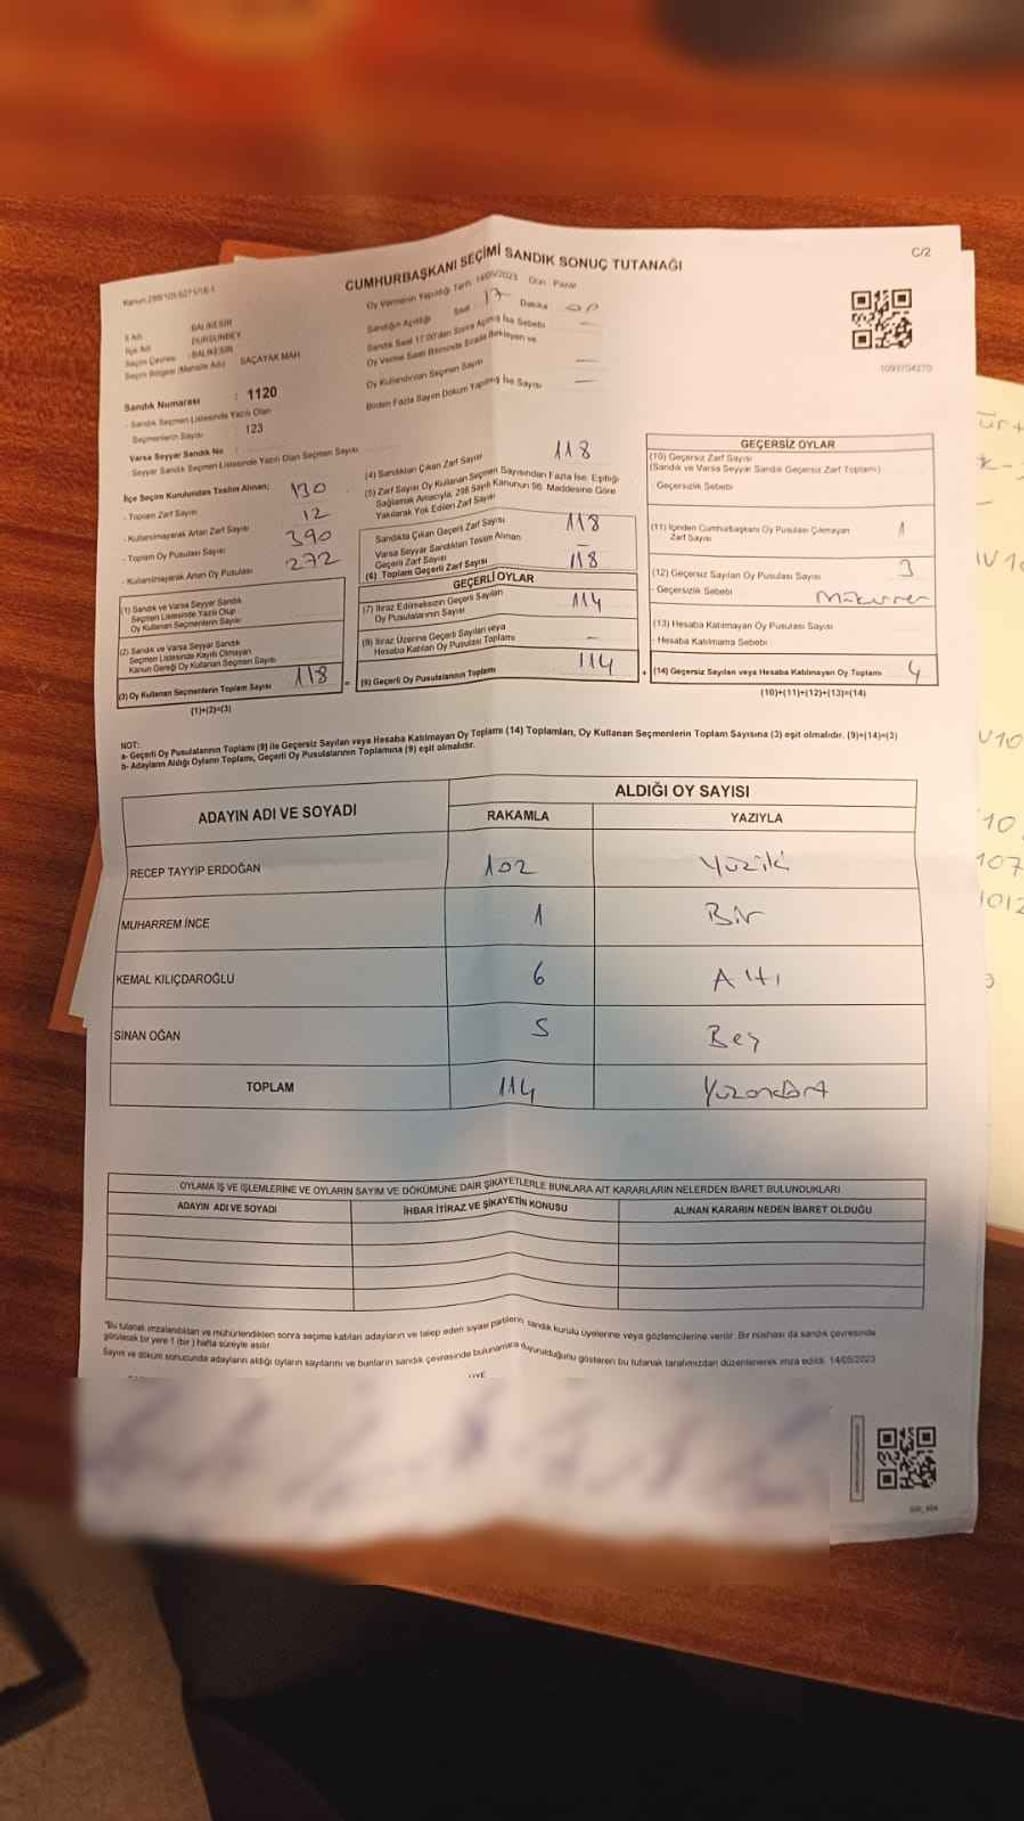 C/2
CUMHURBAŞKANI SEÇİMİ SANDIK SONUÇ TUTANAĞI
Oy Vermenin Yapıldığı Tarih 14/05/2023 Gün: Pazar
Sandığın Açıldığı Saat 17 Dakika
İl Adı BALIKESİR
İlçe Adı DURSUNBEY
Seçim Çevresi : BALIKESİR
SAÇAYAK MAH
Sandık Numarası : 1120
- Sandık Seçmen Listesinde Yazılı Olan
Seçmenlerin Sayısı 123
Varsa Seyyar Sandık No
Seyyar Sandık Seçmen Listesinde Yazılı Olan Seçmen Sayısı
Oy Kullandırılan Seçmen Sayısı —
Birden Fazla Sayım Döküm Yapılmış İse Sayısı —
İlçe Seçim Kurulundan Teslim Alınan;
- Toplam Zarf Sayısı 130
- Kullanılmayarak Artan Zarf Sayısı 12
- Toplam Oy Pusulası Sayısı 390
- Kullanılmayarak Artan Oy Pusulası 272
(1) Sandık ve Varsa Seyyar Sandık
Seçmen Listesinde Yazılı Olup
Oy Kullanan Seçmenlerin Sayısı
(2) Sandık ve Varsa Seyyar Sandık
Seçmen Listesinde Kayıtlı Olmayan
Kanun Gereği Oy Kullanan Seçmen Sayısı
(3) Oy Kullanan Seçmenlerin Toplam Sayısı 118
(1)+(2)=(3)
(4) Sandıktan Çıkan Zarf Sayısı 118
(5) Zarf Sayısı Oy Kullanan Seçmen Sayısından Fazla İse, Eşitliği
Sağlamak Amacıyla, 298 Sayılı Kanunun 98. Maddesine Göre
Yakılarak Yok Edilen Zarf Sayısı
Sandıkta Çıkan Geçerli Zarf Sayısı 118
Varsa Seyyar Sandıktan Teslim Alınan
Geçerli Zarf Sayısı —
(6) Toplam Geçerli Zarf Sayısı 118
GEÇERLİ OYLAR
(7) İtiraz Edilmeksizin Geçerli Sayılan
Oy Pusulalarının Sayısı 114
(8) İtiraz Üzerine Geçerli Sayılan veya
Hesaba Katılan Oy Pusulası Toplamı —
(9) Geçerli Oy Pusulalarının Toplamı 114
GEÇERSİZ OYLAR
(10) Geçersiz Zarf Sayısı
(Sandık ve Varsa Seyyar Sandık Geçersiz Zarf Toplamı)
Geçersizlik Sebebi
(11) İçinden Cumhurbaşkanı Oy Pusulası Çıkmayan
Zarf Sayısı 1
(12) Geçersiz Sayılan Oy Pusulası Sayısı 3
- Geçersizlik Sebebi
(13) Hesaba Katılmayan Oy Pusulası Sayısı
- Hesaba Katılmama Sebebi
(14) Geçersiz Sayılan veya Hesaba Katılmayan Oy Toplamı 4
(10)+(11)+(12)+(13)=(14)
NOT:
a- Geçerli Oy Pusulalarının Toplamı (9) ile Geçersiz Sayılan veya Hesaba Katılmayan Oy Toplamı (14) Toplamları, Oy Kullanan Seçmenlerin Toplam Sayısına (3) eşit olmalıdır. (9)+(14)=(3)
b- Adayların Aldığı Oyların Toplamı, Geçerli Oy Pusulalarının Toplamına (9) eşit olmalıdır.
ADAYIN ADI VE SOYADI ALDIĞI OY SAYISI
RAKAMLA YAZIYLA
RECEP TAYYİP ERDOĞAN 102 Yüziki
MUHARREM İNCE 1 Bir
KEMAL KILIÇDAROĞLU 6 Altı
SİNAN OĞAN 5 Beş
TOPLAM 114 Yüzondört
OYLAMA İŞ VE İŞLEMLERİNE VE OYLARIN SAYIM VE DÖKÜMÜNE DAİR ŞİKAYETLERLE BUNLARA AİT KARARLARIN NELERDEN İBARET BULUNDUKLARI
ADAYIN ADI VE SOYADI İHBAR İTİRAZ VE ŞİKAYETİN KONUSU ALINAN KARARIN NEDEN İBARET OLDUĞU
"Bu tutanak imzalandıktan ve mühürlendikten sonra seçime katılan adayların ve talep eden siyasi partilerin sandık kurulu üyelerine veya gözlemcilerine verilir. Bir nüshası da sandık çevresinde
görülecek bir yere 1 (bir) hafta süreyle asılır.
Sayım ve döküm sonucunda adayların aldığı oyların sayılarını ve bunların sandık çevresinde bulunanlara duyurulduğunu gösteren bu tutanak tarafımızdan düzenlenerek imza edildi. 14/05/2023